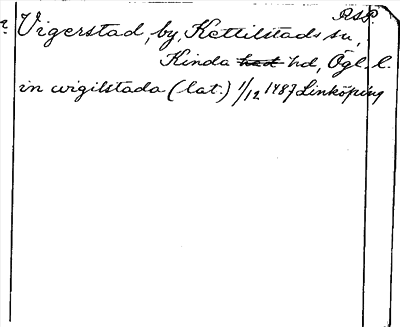 RSP.
Vigerstad, by, Kettilstads sn,
Kinda hd, Ögl. l.
in wigilstada (lat.) 1/12 1487 Linköping